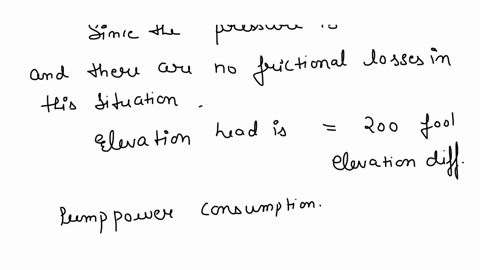 Since the pressure is
and there are no frictional losses in
this situation.
Elevation head is = 200 fool
elevation diff.
Pump power consumption.